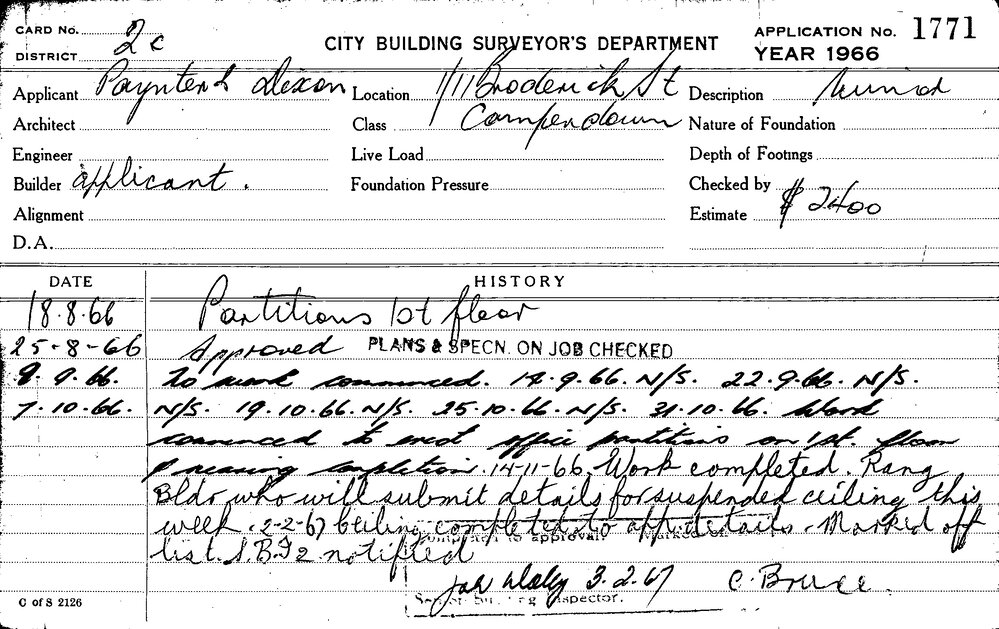 CARD No. 2c
DISTRICT
CITY BUILDING SURVEYOR'S DEPARTMENT
APPLICATION No. 1771
YEAR 1966
Applicant Paynter & Dixon Location 1/11 Broderick St Description
Architect Class Camperdown Nature of Foundation
Engineer Live Load Depth of Footings
Builder applicant. Foundation Pressure Checked by
Alignment Estimate $ 2400
D.A.
DATE HISTORY
18.8.66 Partitions 1st floor
25-8-66 Approved PLANS & SPECN. ON JOB CHECKED
9.9.66. commenced. 14.9.66. N/S. 22.9.66. N/S.
7.10.66. N/S. 19.10.66. N/S. 25.10.66. N/S. 31.10.66. Work
commenced to erect office partitions on 1st. floor
& nearing completion. 14-11-66. Work completed. Rang
Bldr who will submit details for suspended ceiling this
week. 2-2-67 Ceiling completed to app. details. Marked off
list. S.B.I 2 notified
completed to approval
3.2.67 C. Bruce.
Inspector.
C of S 2126